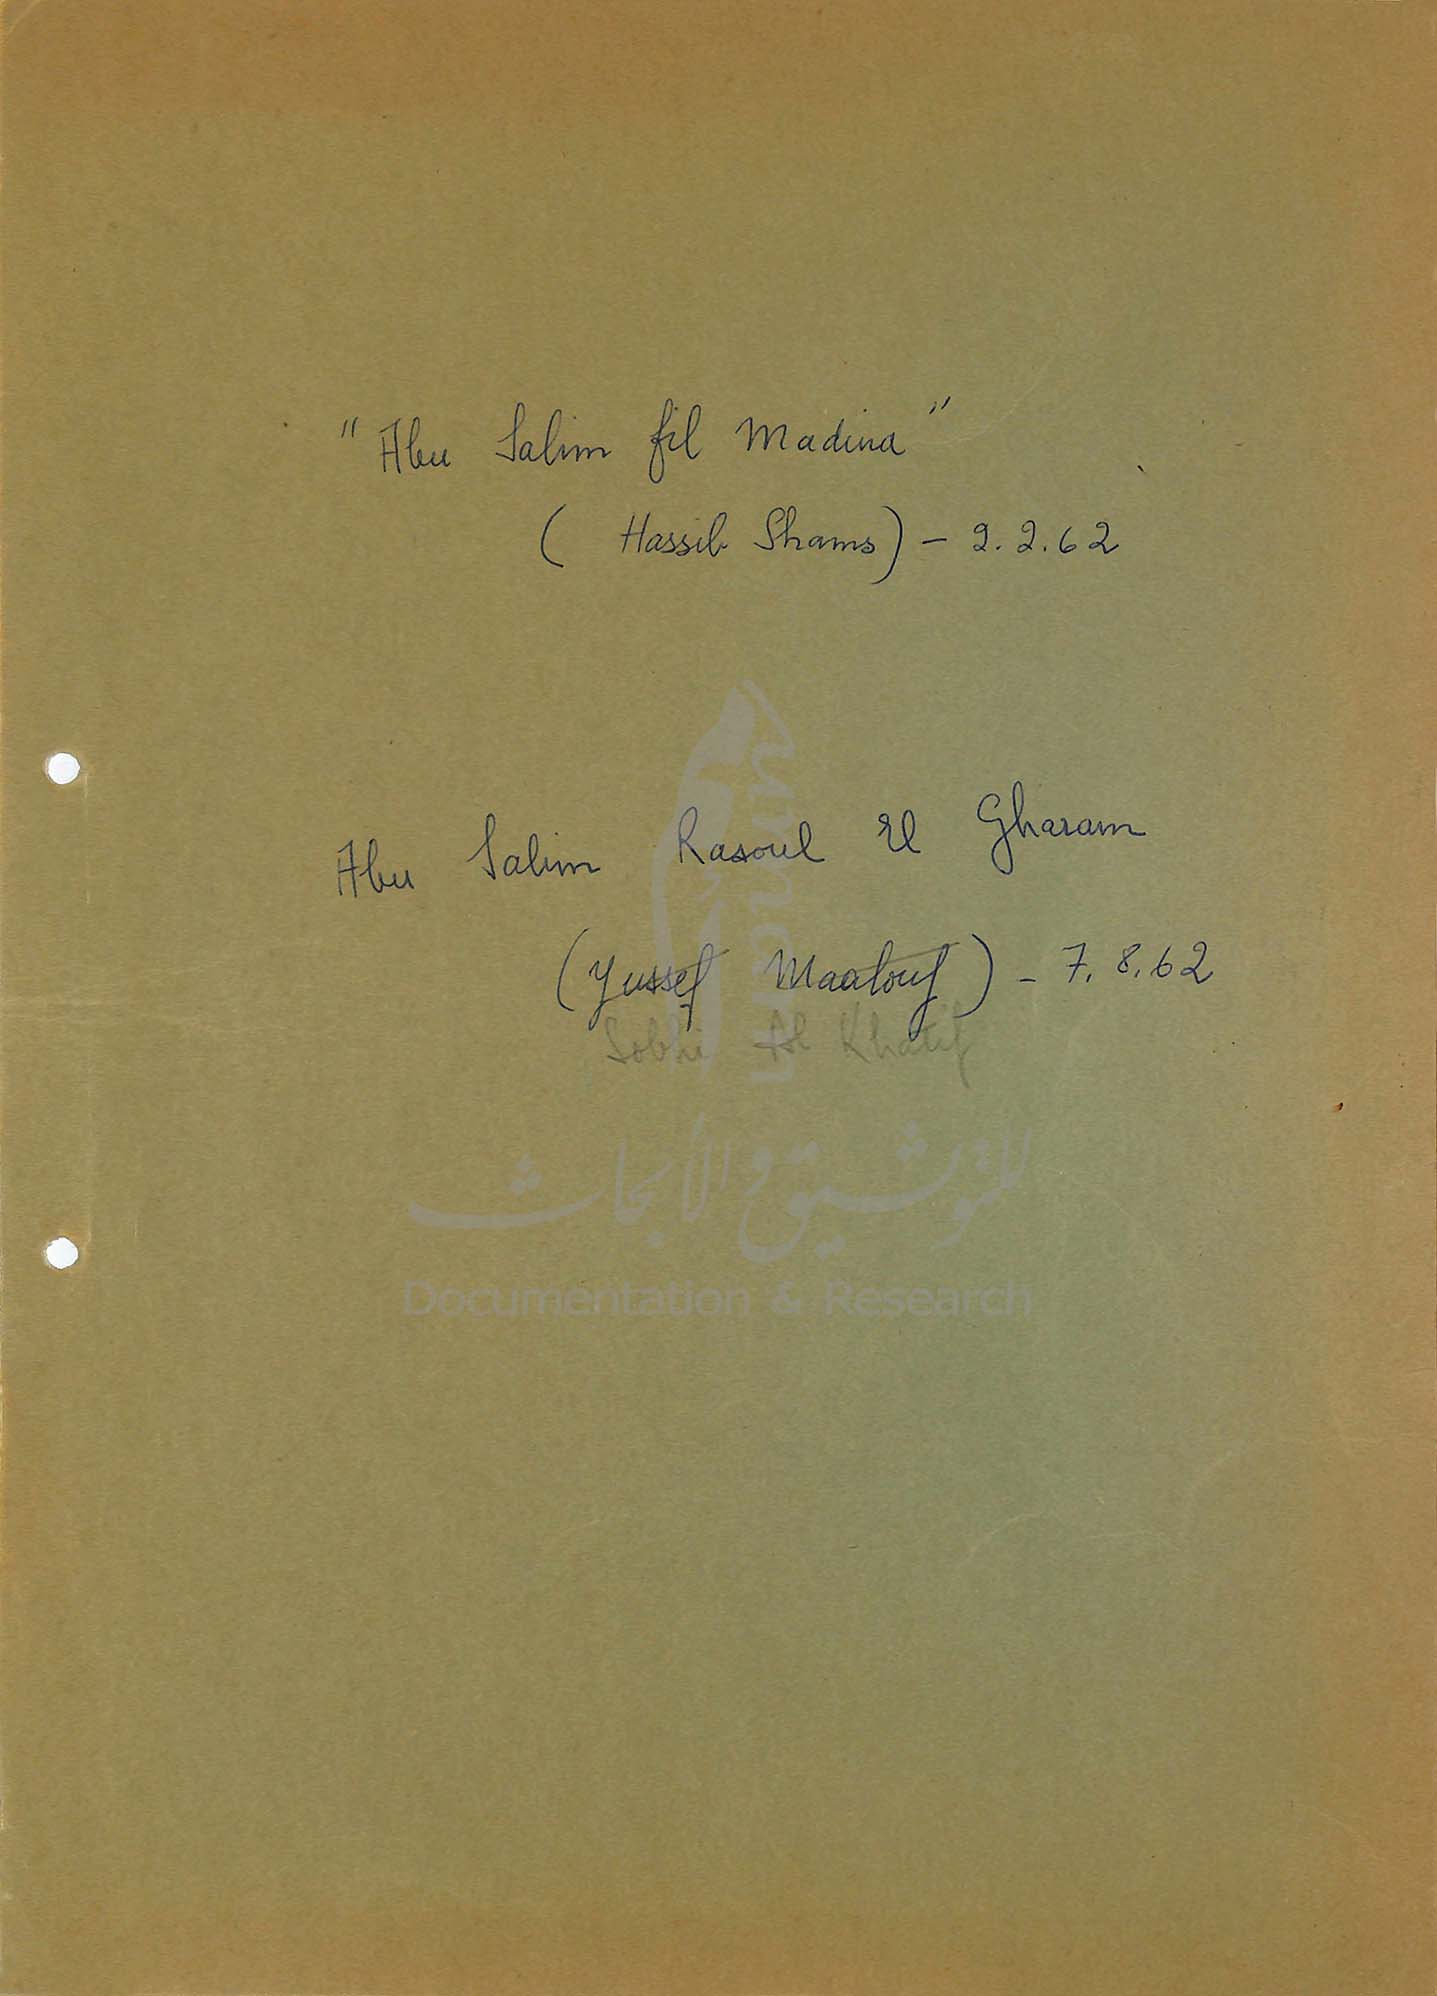 "Abu Salim fil Madina"
( Hassib Shams) - 2.2.62
Abu Salim Rasoul El Gharam
(Yussef Maalouf) - 7.8.62
Sobhi Al Khatib
UMAM
للتوثيق والأبحاث
Documentation & Research